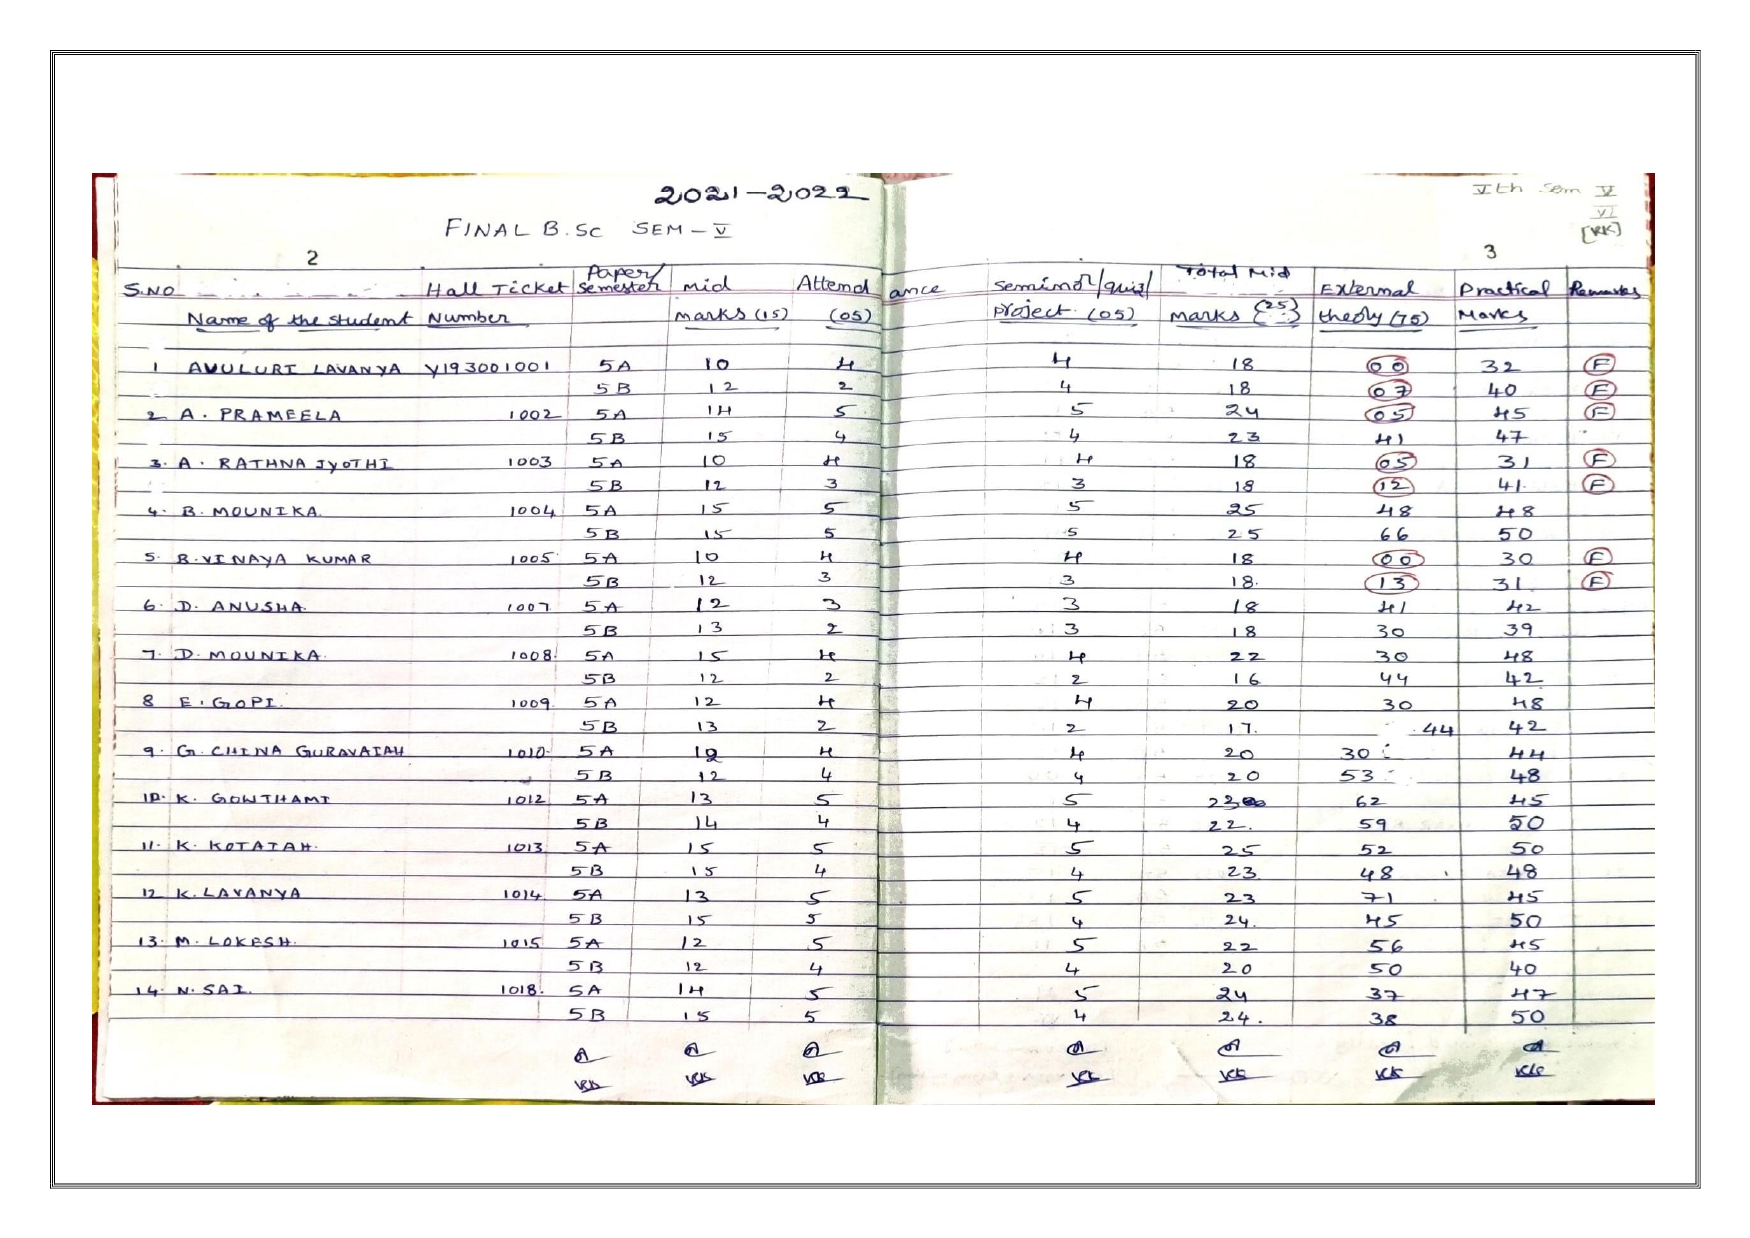 2021-2022
Vth Sem V
VI
[KK]
FINAL B.Sc SEM-V
2
3
S.NO Hall Ticket Paper/Semester Mid Attendance Seminor/quiz/ Total Mid External Practical Remarks
Name of the student Number marks (15) (05) project (05) marks (25) theory (75) Marks
1 AVULURI LAVANYA Y193001001 5A 10 4 4 18 00 32 F
5B 12 2 4 18 07 40 F
2 A. PRAMEELA 1002 5A 14 5 5 24 05 45 F
5B 15 4 4 23 41 47
3. A. RATHNA JYOTHI 1003 5A 10 4 4 18 05 31 F
5B 12 3 3 18 12 41. F
4. B. MOUNIKA. 1004 5A 15 5 5 25 48 48
5B 15 5 5 25 66 50
5. B. VINAYA KUMAR 1005 5A 10 4 4 18 00 30 F
5B 12 3 3 18. 13 31 F
6. D. ANUSHA. 1007 5A 12 3 3 18 41 42
5B 13 2 3 18 30 39
7. D. MOUNIKA. 1008. 5A 15 4 4 22 30 48
5B 12 2 2 16 44 42
8 E. GOPI. 1009. 5A 12 4 4 20 30 48
5B 13 2 2 17. 44 42
9. G. CHINA GURAVAIAH 1010. 5A 12 4 4 20 30 44
5B 12 4 4 20 53 48
10. K. GOWTHAMI 1012 5A 13 5 5 23 62 45
5B 14 4 4 22. 59 50
11. K. KOTAIAH. 1013 5A 15 5 5 25 52 50
5B 15 4 4 23 48 48
12 K. LAVANYA 1014 5A 13 5 5 23 71 45
5B 15 5 4 24. 45 50
13. M. LOKESH. 1015 5A 12 5 5 22 56 45
5B 12 4 4 20 50 40
14. N. SAI. 1018. 5A 14 5 5 24 37 47
5B 15 5 4 24. 38 50
KK KK KK KK KK KK KK